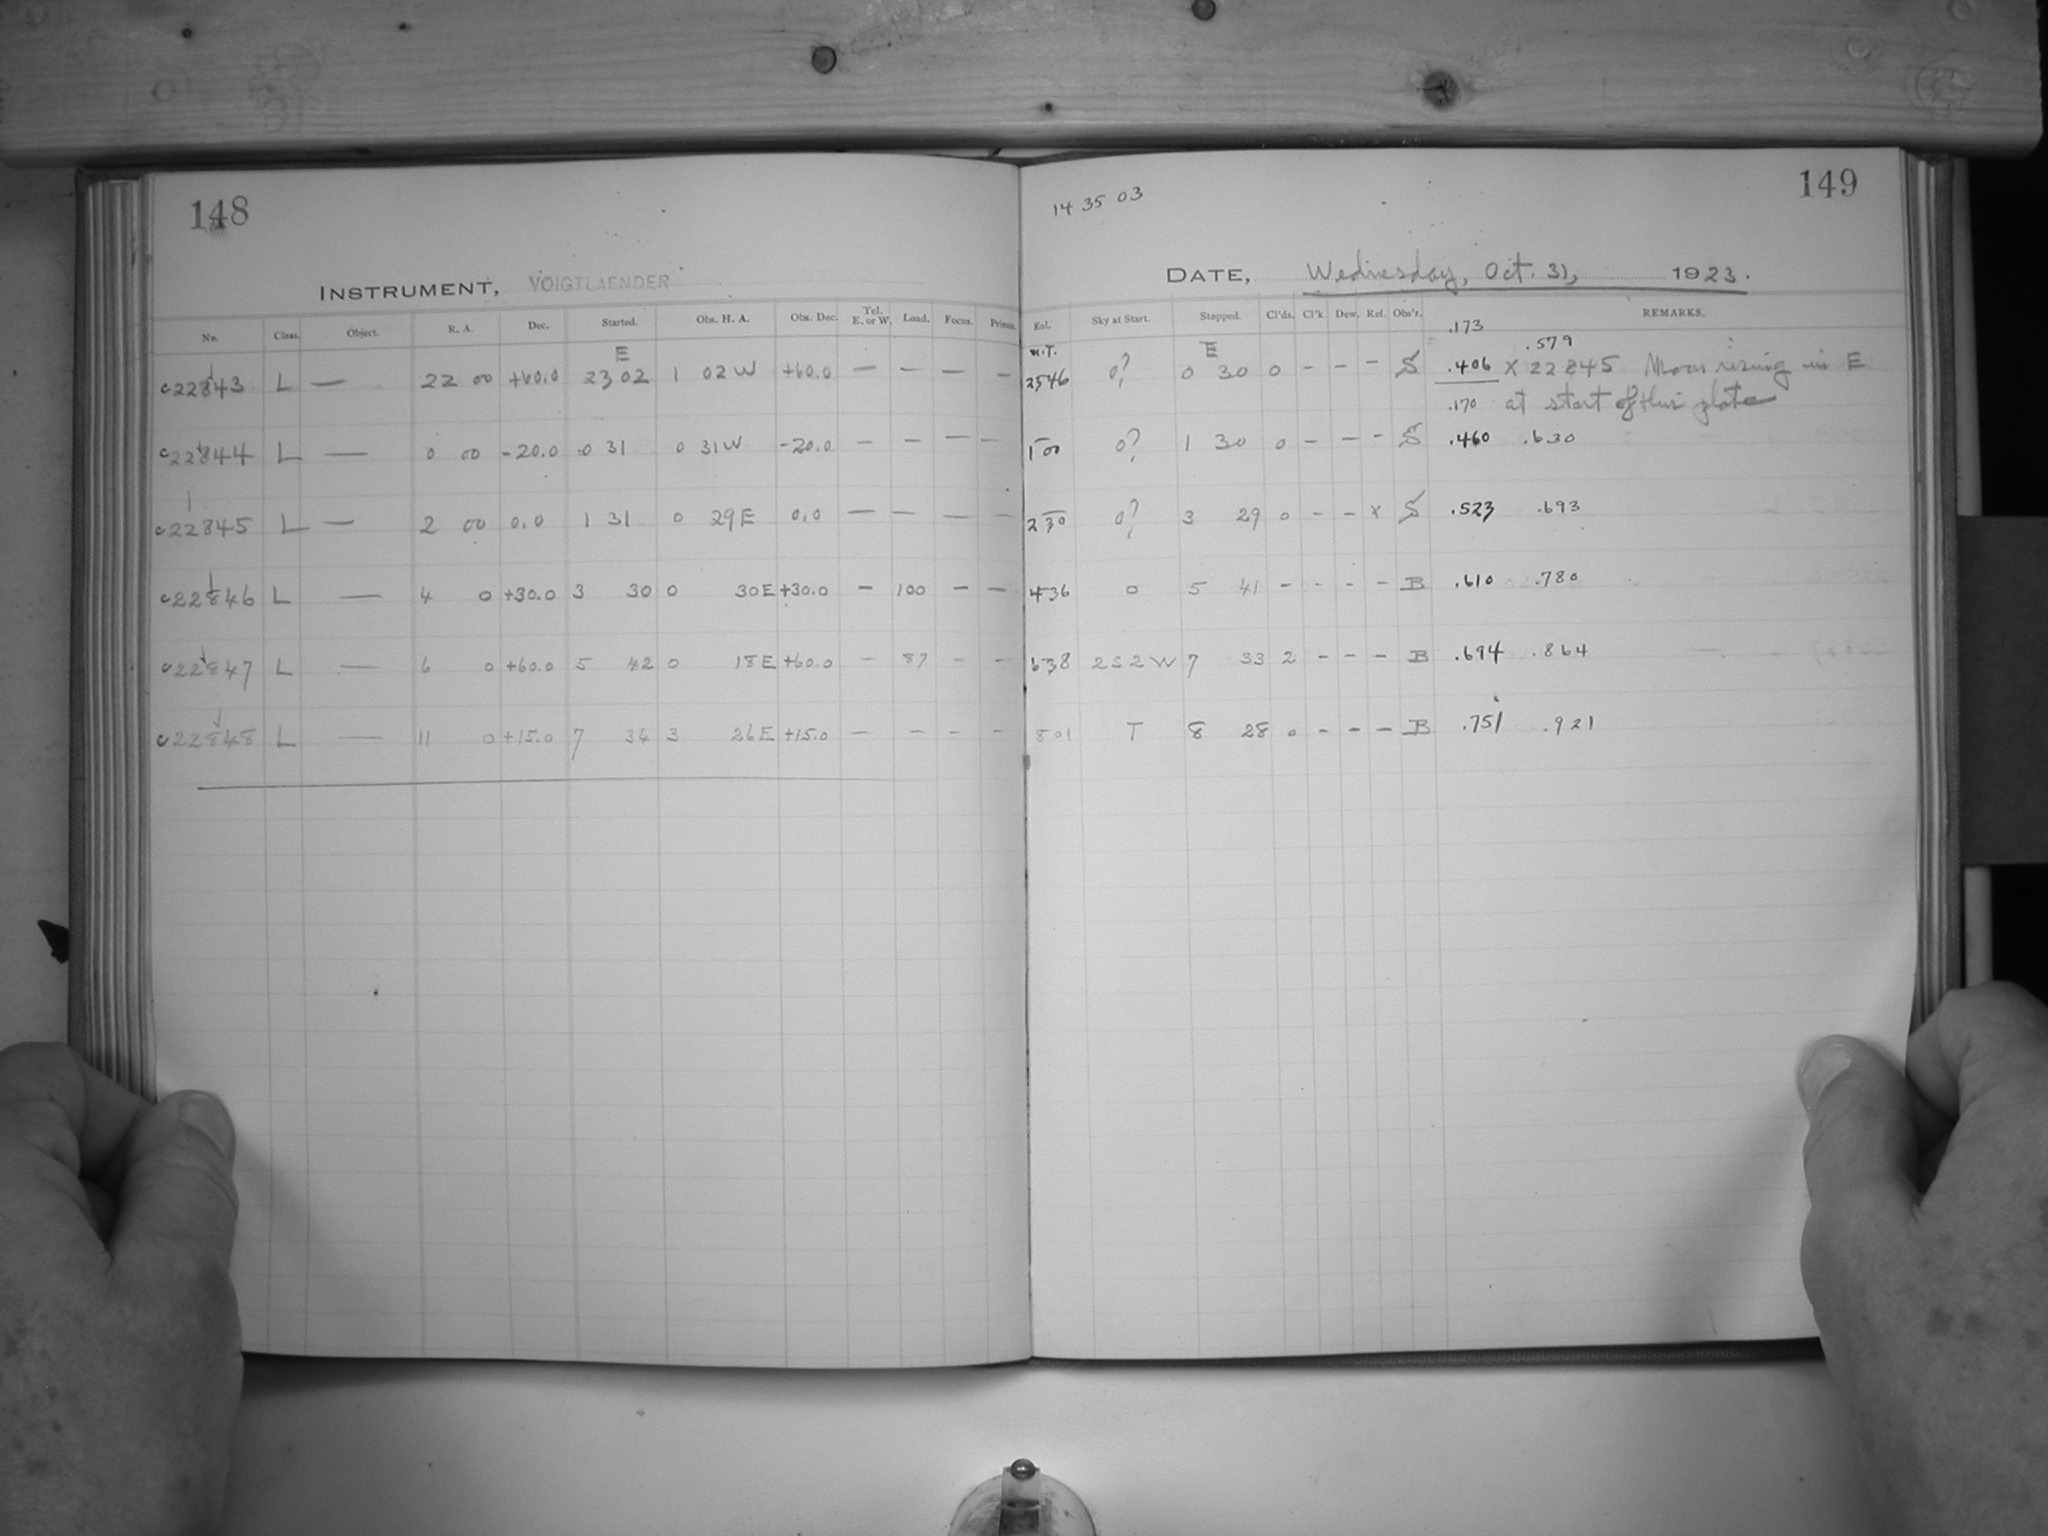 148
INSTRUMENT, VOIGTLAENDER
No. Class. Object. R. A. Dec. Started. Obs. H. A. Obs. Dec. Tel. E. or W. Load. Focus. Prisms.
E
c22843 L — 22 00 +60.0 23 02 1 02 W +60.0 — — — —
c22844 L — 0 00 -20.0 0 31 0 31 W -20.0 — — — —
c22845 L — 2 00 0.0 1 31 0 29 E 0.0 — — — —
c22846 L — 4 0 +30.0 3 30 0 30 E +30.0 — 100 — —
c22847 L — 6 0 +60.0 5 42 0 18 E +60.0 — 87 — —
c22848 L — 11 0 +15.0 7 34 3 26 E +15.0 — — — —
149
14 35 03
DATE, Wednesday, Oct. 31, 1923.
Sky at Start. Stopped. Cl'ds. Cl'k Dew. Ref. Obs'r. REMARKS.
.173
M.T. E .579
2346 0? 0 30 0 - - - S .406 X 22845 Moon rising in E
.170 at start of this plate
100 0? 1 30 0 - - - S .460 .630
230 0? 3 29 0 - - x S .523 .693
436 0 5 41 - - - - B .610 .780
638 2S2W 7 33 2 - - - B .694 .864
801 T 8 28 0 - - - B .751 .921